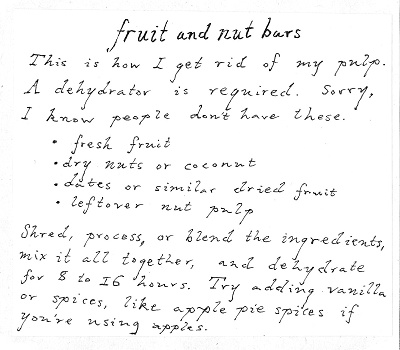 fruit and nut bars
This is how I get rid of my pulp.
A dehydrator is required. Sorry,
I know people don't have these.
• fresh fruit
• dry nuts or coconut
• dates or similar dried fruit
• leftover nut pulp
Shred, process, or blend the ingredients,
mix it all together, and dehydrate
for 8 to 16 hours. Try adding vanilla
or spices, like apple pie spices if
you're using apples.